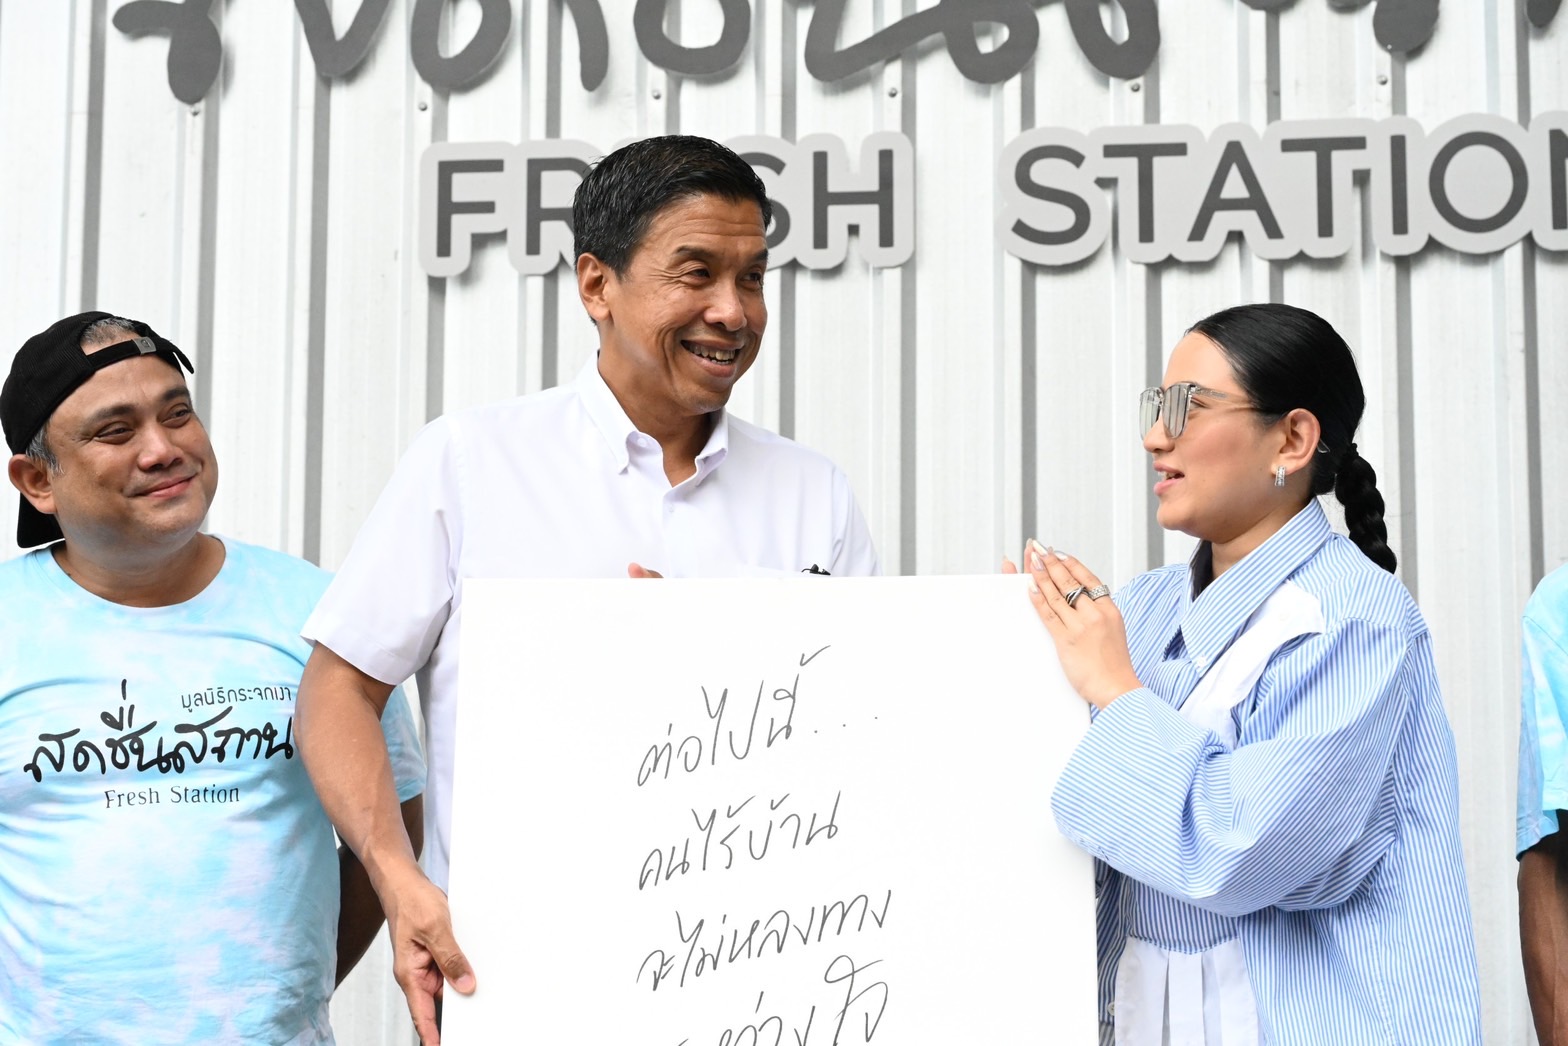 FRESH STATION
มูลนิธิกระจกเงา
สดชื่นสถาน
Fresh Station
ต่อไปนี้...
คนไร้บ้าน
จะไม่หลงทาง